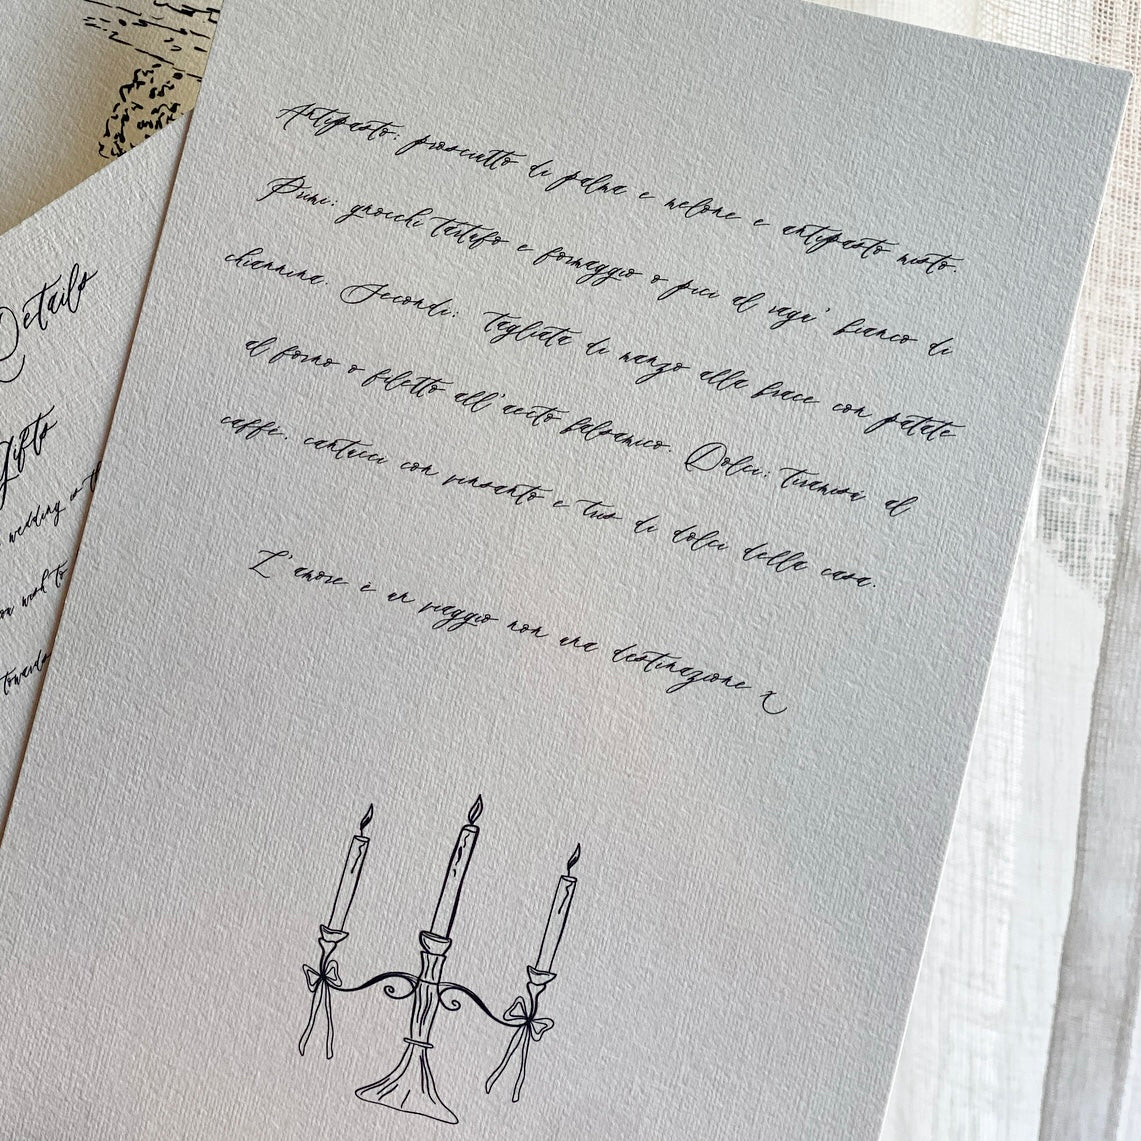 Antipasto: prosciutto di palma e melone e antipasto misto.
Primi: gnocchi tartufo e formaggio o pici al ragu' bianco di
chiannina. Secondi: Tagliata di manzo alla brace con patate
al forno o filetto all'aceto balsamico. Dolci: Tiramisù al
caffè. cantucci con vinsanto e tris di dolci della casa.
L'amore è un viaggio non una destinazione x
Details
Gifts
wedding is
you wish to
towards